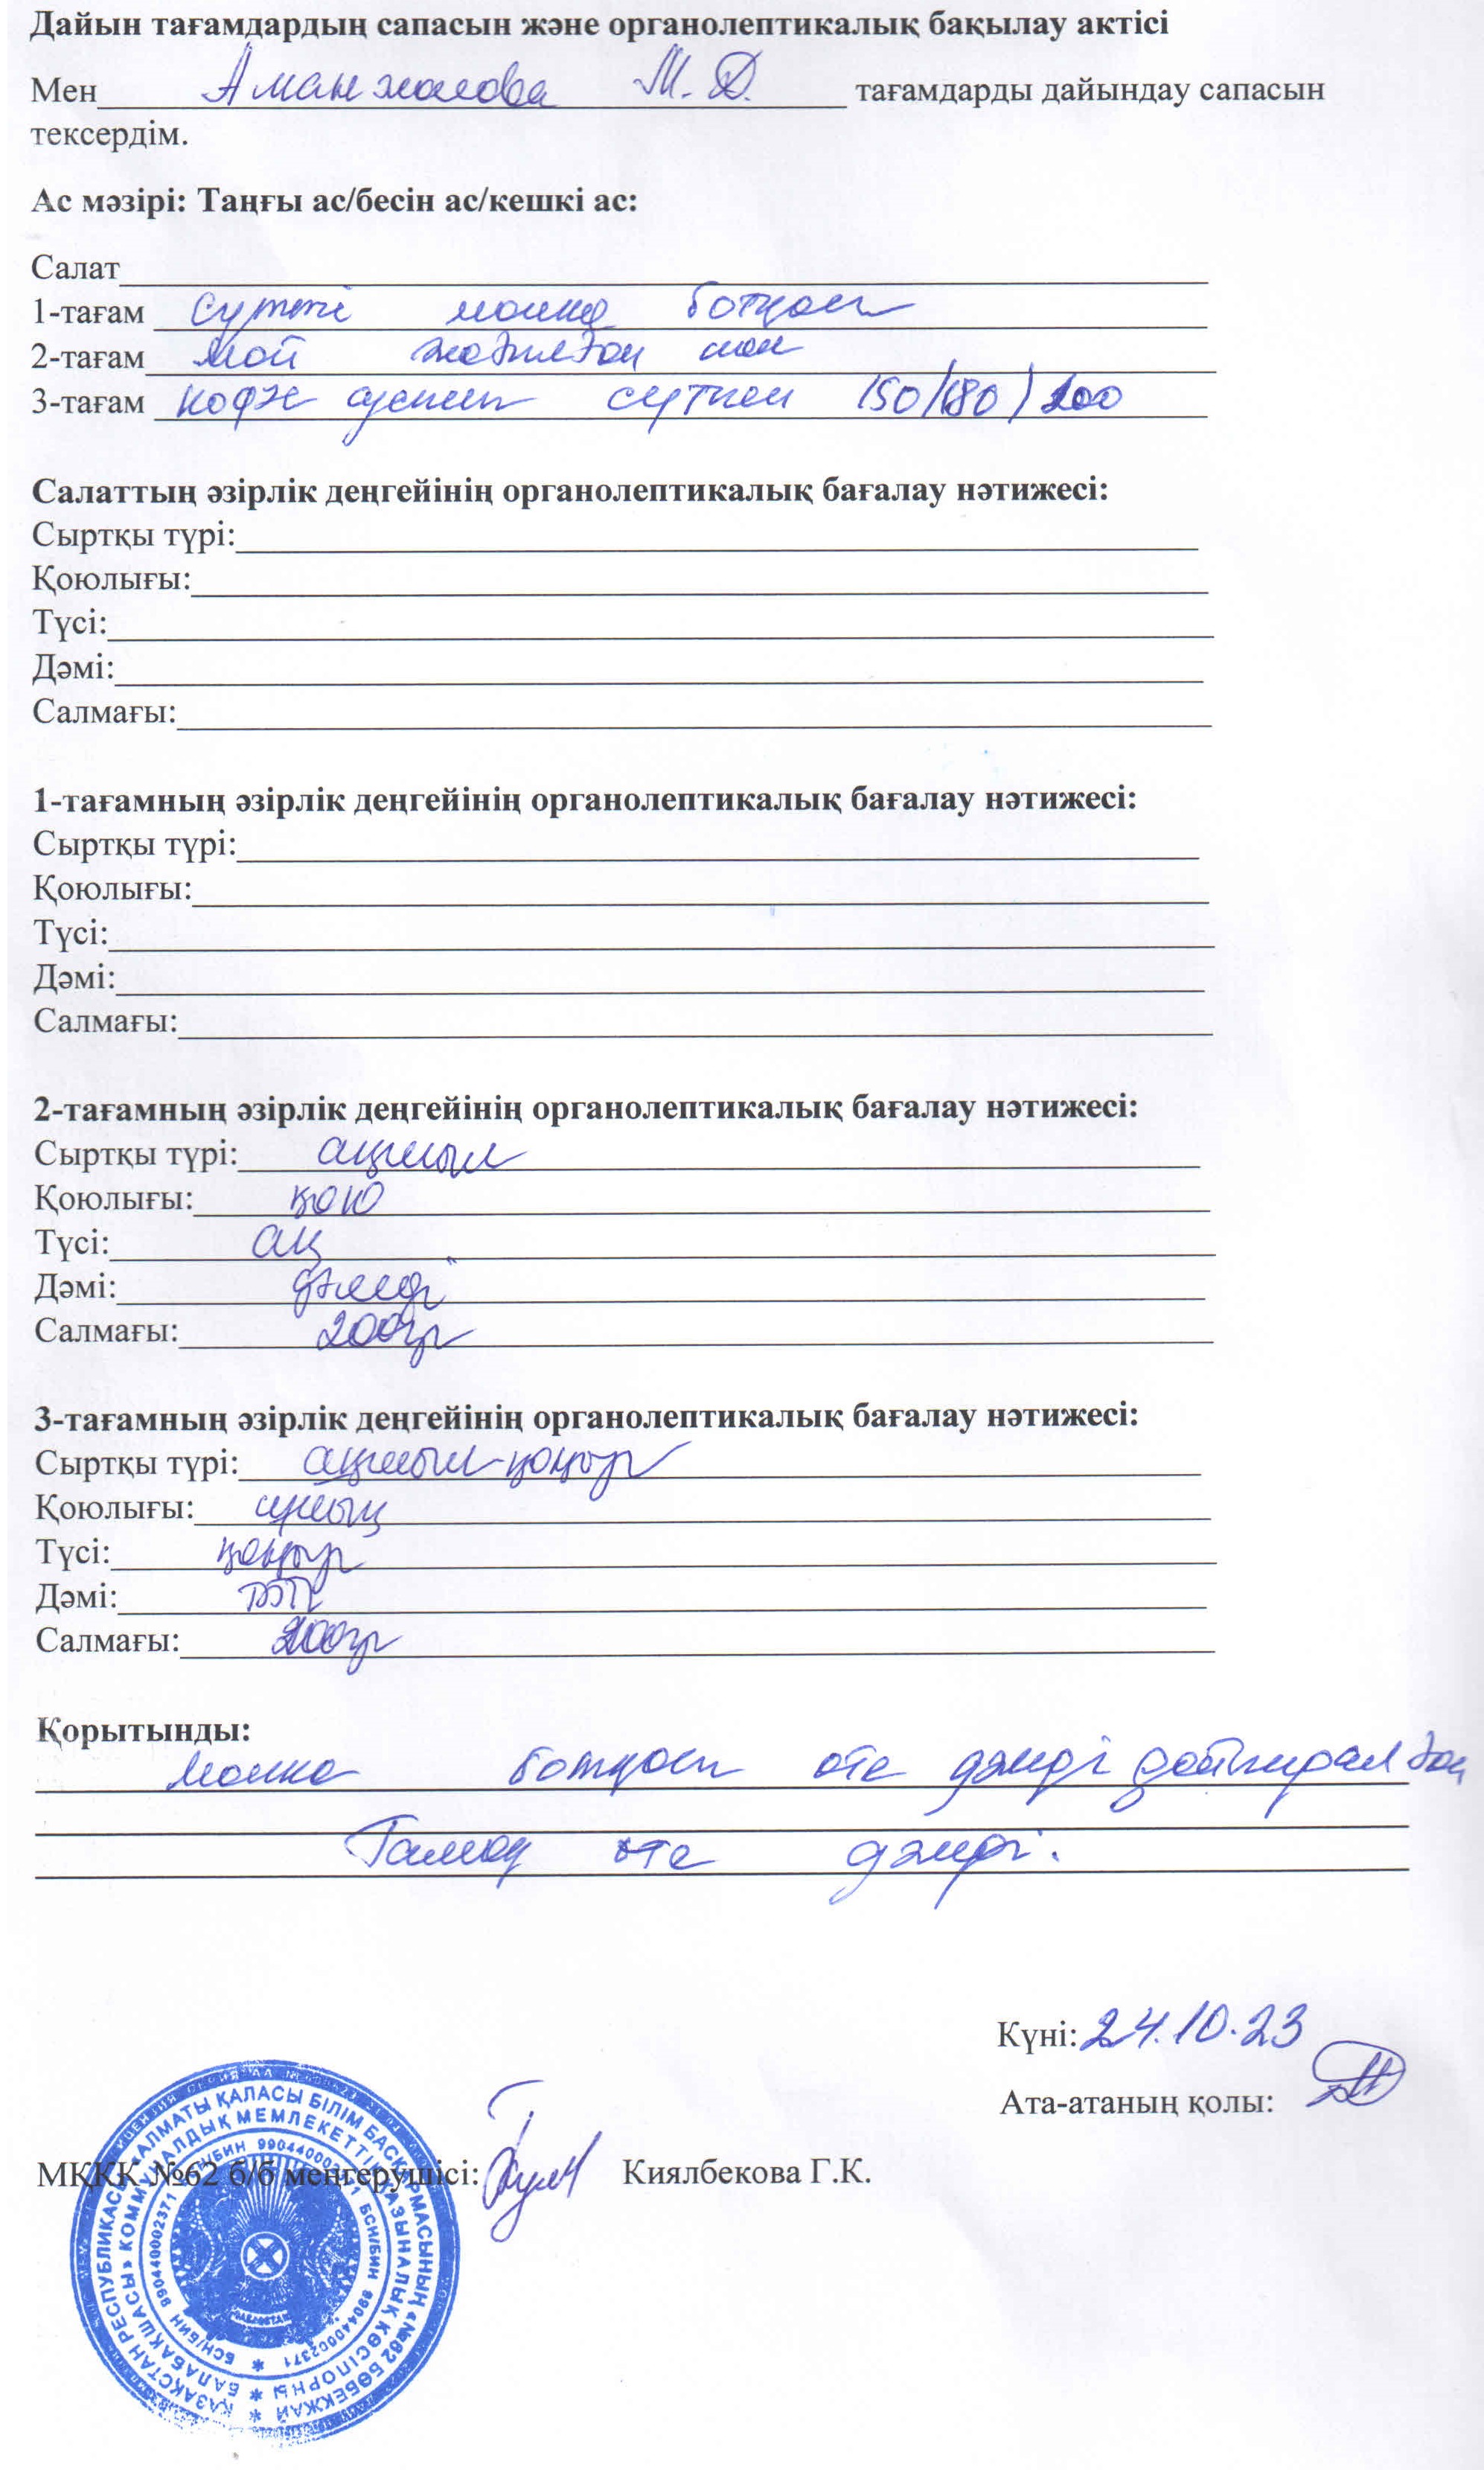 Дайын тағамдардың сапасын және органолептикалық бақылау актісі
Мен Аманжолова М.Д. тағамдарды дайындау сапасын
тексердім.
Ас мәзірі: Таңғы ас/бесін ас/кешкі ас:
Салат
1-тағам сүтті манка ботқасы
2-тағам май жағылған нан
3-тағам кофе сүтпен 150/180/200
Салаттың әзірлік деңгейінің органолептикалық бағалау нәтижесі:
Сыртқы түрі:
Қоюлығы:
Түсі:
Дәмі:
Салмағы:
1-тағамның әзірлік деңгейінің органолептикалық бағалау нәтижесі:
Сыртқы түрі:
Қоюлығы:
Түсі:
Дәмі:
Салмағы:
2-тағамның әзірлік деңгейінің органолептикалық бағалау нәтижесі:
Сыртқы түрі: ақшыл
Қоюлығы: қою
Түсі: ақ
Дәмі: дәмді
Салмағы: 200гр
3-тағамның әзірлік деңгейінің органолептикалық бағалау нәтижесі:
Сыртқы түрі: ақшыл-қоңыр
Қоюлығы: сұйық
Түсі: қоңыр
Дәмі: тәтті
Салмағы: 200гр
Қорытынды:
Манка ботқасы өте дәмді дайындалған
Тамақ өте дәмді.
Күні: 24.10.23
Ата-атаның қолы:
МҚКК №62 б/б меңгерушісі: Киялбекова Г.К.
ҚАЗАҚСТАН РЕСПУБЛИКАСЫ АЛМАТЫ ҚАЛАСЫ БІЛІМ БАСҚАРМАСЫНЫҢ «№62 БӨБЕКЖАЙ
БАЛАБАҚШАСЫ» КОММУНАЛДЫҚ МЕМЛЕКЕТТІК ҚАЗЫНАЛЫҚ КӘСІПОРНЫ
БСН/БИН 990440002371